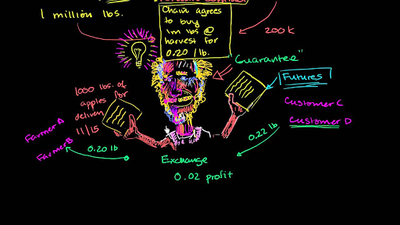 1 million lbs.
Chain agrees
to buy
1m lbs @
harvest for
0.20 / lb.
200k
"Guarantee"
Futures
1000 lbs. of
apples for
delivery
11/15
Customer C
Customer D
Farmer A
Farmer B
0.20 lb
0.22 lb
Exchange
0.02 profit